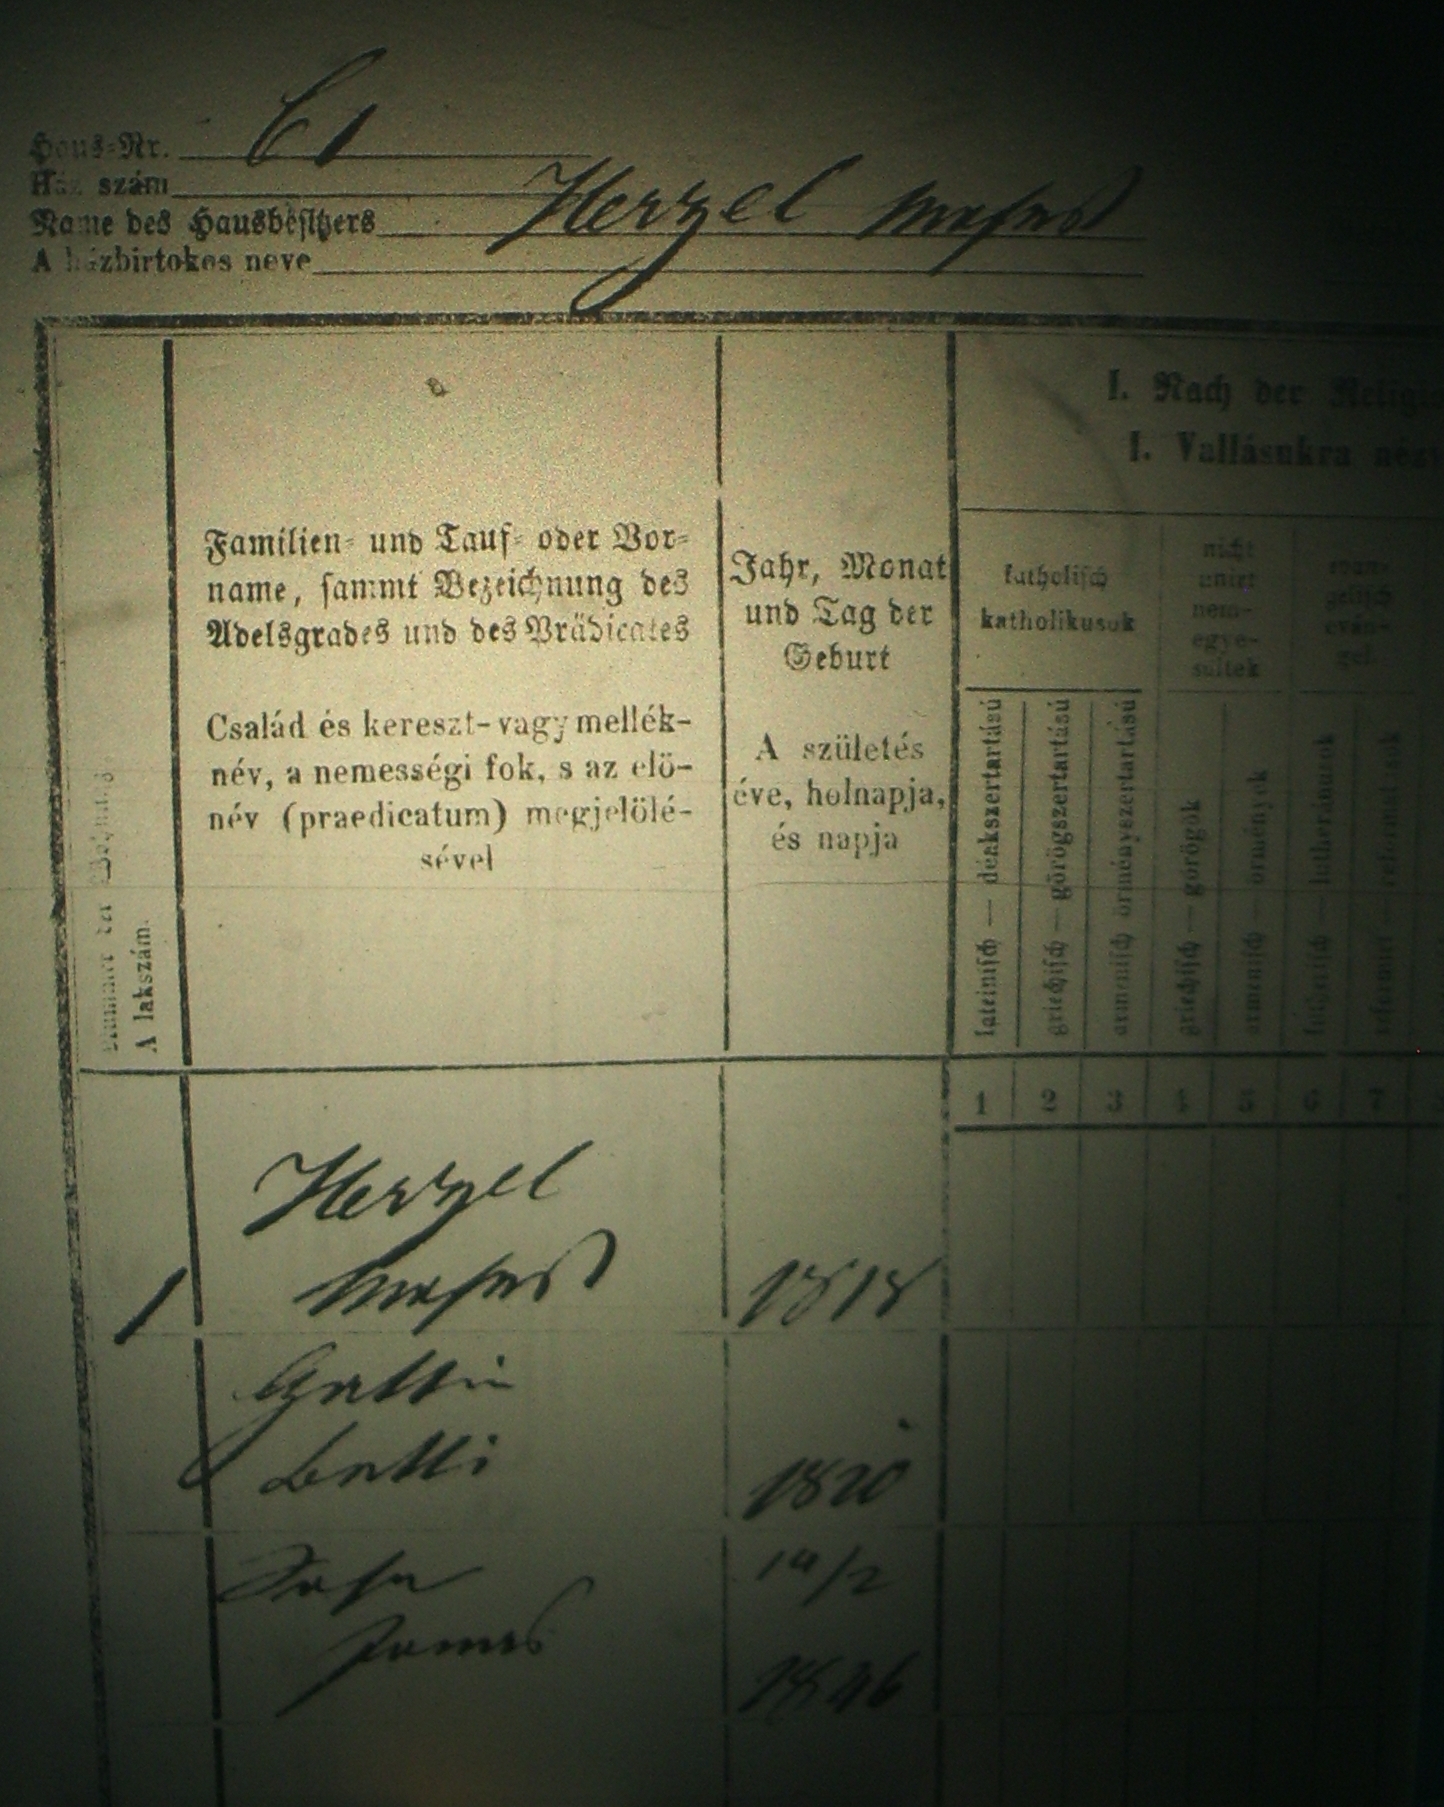 Haus-Nr. 61
Ház szám
Name des Hausbesitzers Herzel
A házbirtokos neve
I. Nach der
I. Vallásukra
Nummer der
A lakszám.
Familien- und Tauf- oder Vor-
name, sammt Bezeichnung des
Adelsgrades und des Prädicates
Család és kereszt- vagy mellék-
név, a nemességi fok, s az elö-
név (praedicatum) megjelölé-
sével
Jahr, Monat
und Tag der
Geburt
A születés
éve, holnapja,
és napja
katholisch
katholikusok
nicht
unirt
nem-
egye-
sültek
evan-
gelisch
evan-
gel.
lateinisch — déakszertartású
griechisch — görögszertartású
armenisch örményszertartású
griechisch — görögök
armenisch — örmények
lutherisch — lutheránusok
reformirt — reformatusok
1 2 3 4 5 6 7
Herzel
1 1818
Gattin
Betti 1820
Sohn
1846